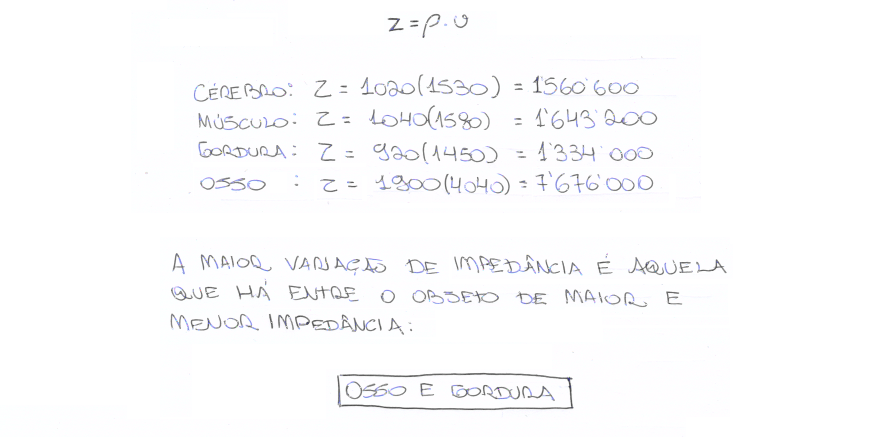 Z = ρ.v
CÉREBRO: Z = 1020(1530) = 1'560'600
MÚSCULO: Z = 1040(1580) = 1'643'200
GORDURA: Z = 920(1450) = 1'334'000
OSSO : Z = 1900(4040) = 7'676'000
A MAIOR VARIAÇÃO DE IMPEDÂNCIA É AQUELA
QUE HÁ ENTRE O OBJETO DE MAIOR E
MENOR IMPEDÂNCIA:
OSSO E GORDURA